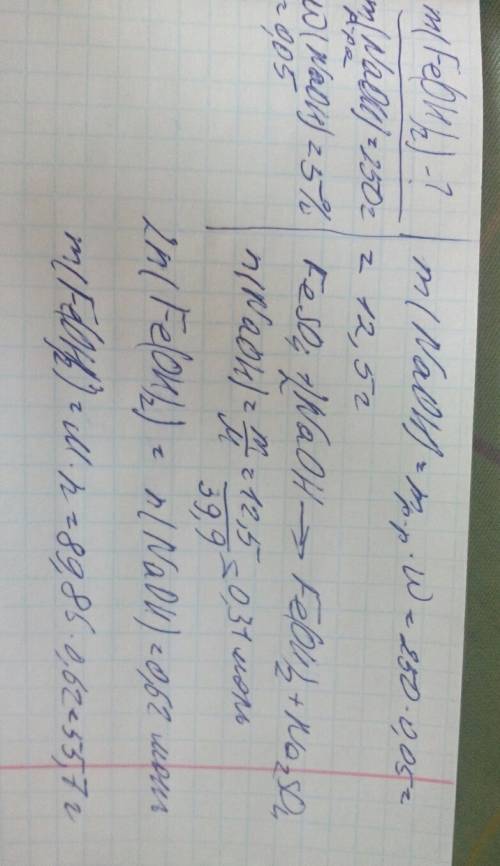 m(Fe(OH)₂) - ?
m(NaOH) = 250г
р-ра
W(NaOH) = 5%
= 0,05
m(NaOH) = mр-р · W = 250 · 0,05 =
= 12,5г
FeSO₄ + 2NaOH → Fe(OH)₂ + Na₂SO₄
n(NaOH) = m/M = 12,5/39,9 = 0,31 моль
2n(Fe(OH)₂) = n(NaOH) = 0,62 моль
m(Fe(OH)₂) = M · n = 89,86 · 0,62 = 55,7г